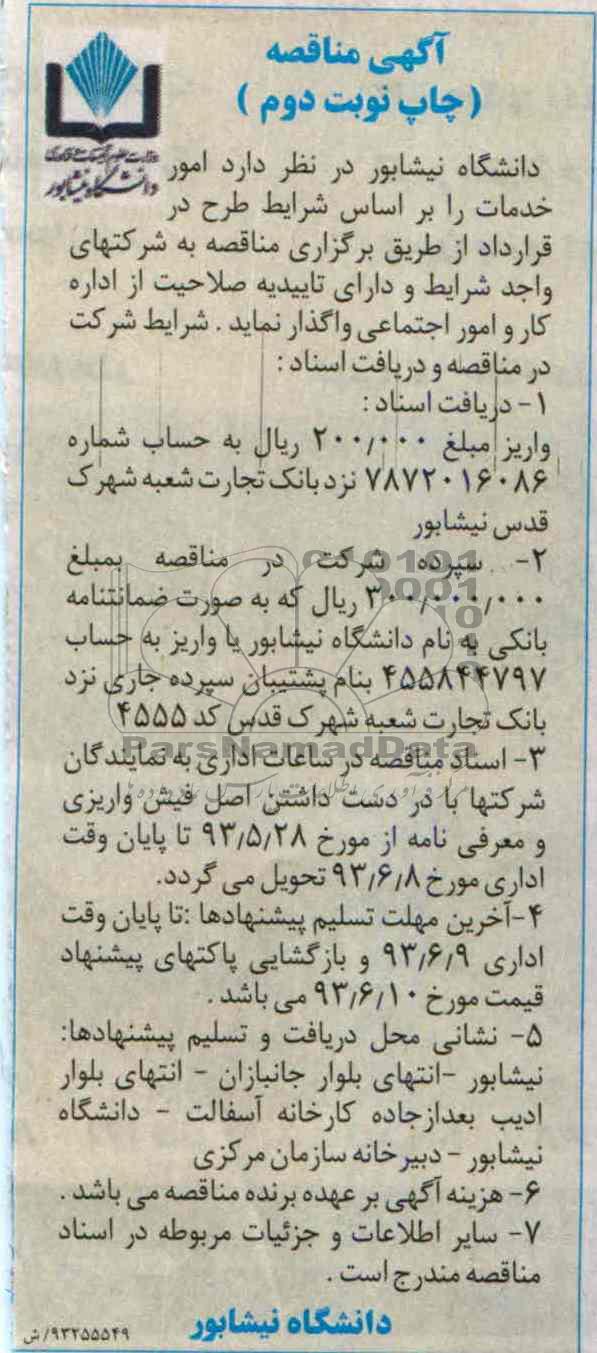 آگهی مناقصه
(چاپ نوبت دوم)
دانشگاه نیشابور
دانشگاه نیشابور در نظر دارد امور
خدمات را بر اساس شرایط طرح در
قرارداد از طریق برگزاری مناقصه به شرکتهای
واجد شرایط و دارای تاییدیه صلاحیت از اداره
کار و امور اجتماعی واگذار نماید . شرایط شرکت
در مناقصه و دریافت اسناد :
۱- دریافت اسناد :
واریز مبلغ ۲۰۰/۰۰۰ ریال به حساب شماره
۷۸۷۲۰۱۶۰۸۶ نزد بانک تجارت شعبه شهرک
قدس نیشابور
۲- سپرده شرکت در مناقصه بمبلغ
۳۰۰/۰۰۰/۰۰۰ ریال که به صورت ضمانتنامه
بانکی به نام دانشگاه نیشابور یا واریز به حساب
۴۵۵۸۴۴۷۹۷ بنام پشتیبان سپرده جاری نزد
بانک تجارت شعبه شهرک قدس کد ۴۵۵۵
ParsNamadData
۳- اسناد مناقصه در ساعات اداری به نمایندگان
شرکتها با در دست داشتن اصل فیش واریزی
و معرفی نامه از مورخ ۹۳/۵/۲۸ تا پایان وقت
اداری مورخ ۹۳/۶/۸ تحویل می گردد.
۴-آخرین مهلت تسلیم پیشنهادها :تا پایان وقت
اداری ۹۳/۶/۹ و بازگشایی پاکتهای پیشنهاد
قیمت مورخ ۹۳/۶/۱۰ می باشد .
۵- نشانی محل دریافت و تسلیم پیشنهادها:
نیشابور -انتهای بلوار جانبازان - انتهای بلوار
ادیب بعدازجاده کارخانه آسفالت - دانشگاه
نیشابور - دبیرخانه سازمان مرکزی
۶- هزینه آگهی بر عهده برنده مناقصه می باشد .
۷- سایر اطلاعات و جزئیات مربوطه در اسناد
مناقصه مندرج است .
دانشگاه نیشابور
۹۳۲۵۵۵۴۹/ش